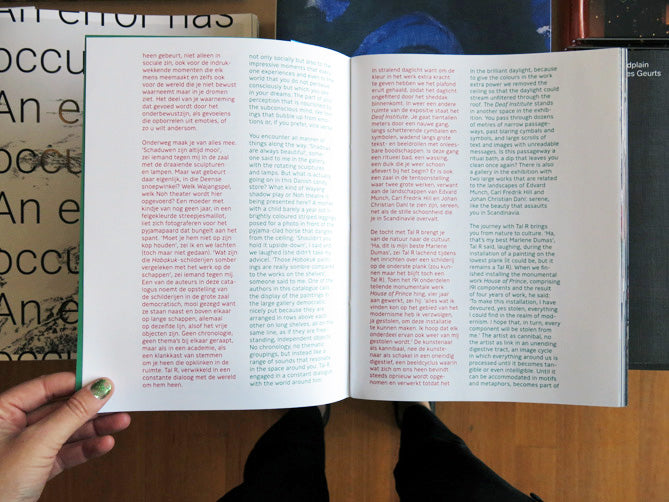 An error has
occu
An e
occu
An e
occu
An e
occu
heen gebeurt, niet alleen in
sociale zin, ook voor de indruk-
wekkende momenten die elk
mens meemaakt en zelfs ook
voor de wereld die je niet bewust
waarneemt maar in je dromen
ziet. Het deel van je waarneming
dat gevoed wordt door het
onderbewustzijn, als gevoelens
die opborrelen uit emoties, of
zo u wilt andersom.
Onderweg maak je van alles mee.
'Schaduwen zijn altijd mooi',
zei iemand tegen mij in de zaal
met de draaiende sculpturen
en lampen. Maar wat gebeurt
daar eigenlijk, in die Deense
snoepwinkel? Welk Wajangspel,
welk Noh theater wordt hier
opgevoerd? Een moeder met
kindje van nog geen jaar, in een
felgekleurde streepjesmaillot,
liet zich fotograferen voor het
pyjamapaard dat bungelt aan het
spant. 'Moet je hem niet op zijn
kop houden', zei ik en we lachten
(toch maar niet gedaan). 'Wat zijn
die Hobokuk-schilderijen somber
vergeleken met het werk op de
schappen', zei iemand tegen mij.
Een van de auteurs in deze cata-
logus noemt de opstelling van
de schilderijen in de grote zaal
democratisch, mooi gezegd want
ze staan naast en boven elkaar
op lange schappen, allemaal
op dezelfde lijn, alsof het vrije
objecten zijn. Geen chronologie,
geen thema's bij elkaar geraapt,
maar als in een academie, als
een klankkast van stemmen
om je heen die opklinken in de
ruimte. Tal R, verwikkeld in een
constante dialoog met de wereld
om hem heen.
not only socially but also to the
impressive moments that every
one experiences and even to the
world that you do not perceive
consciously but which you see
in your dreams. The part of your
perception that is nourished by
the subconscious mind, like feel-
ings that bubble up from emo-
tions or, if you prefer, vice versa.
You encounter all manner of
things along the way. 'Shadows
are always beautiful', someone
one said to me in the gallery
with the rotating sculptures
and lamps. But what is actually
going on in this Danish candy
store? What kind of Wayang
shadow play or Noh theatre is
being presented here? A mother
with a child barely a year old in
brightly coloured striped leggings
posed for a photo in front of the
pyjama-clad horse that dangles
from the ceiling. 'Shouldn't you
hold it upside down', I said and
we laughed (she didn't take my
advice). 'Those Hobokuk paint-
ings are really sombre compared
to the works on the shelves',
someone said to me. One of the
authors in this catalogue calls
the display of the paintings in
the large gallery democratic,
nicely put because they are
arranged in rows above each
other on long shelves, all on the
same line, as if they are free-
standing, independent objects.
No chronology, no thematic
groupings, but instead like a
range of sounds that resonate
in the space around you. Tal R,
engaged in a constant dialogue
with the world around him.
In stralend daglicht want om de
kleur in het werk extra kracht
te geven hebben we het plafond
eruit gehaald, zodat het daglicht
ongefilterd door de sheddak
binnenkomt. In weer een andere
ruimte van de expositie staat het
Deaf Institute. Je gaat tientallen
meters door een nauwe gang,
langs schitterende cymbalen en
symbolen, wadend langs grote
tekst- en beeldrollen met onlees-
bare boodschappen. Is deze gang
een ritueel bad, een wassing,
een duik die je weer schoon
aflevert bij het begin? Er is ook
een zaal in de tentoonstelling
waar twee grote werken, verwant
aan de landschappen van Edvard
Munch, Carl Fredrik Hill en Johan
Christian Dahl te zien zijn, sereen,
net als de stille schoonheid die
je in Scandinavië overvalt.
De tocht met Tal R brengt je
van de natuur naar de cultuur.
'Ha, dit is mijn beste Marlene
Dumas', zei Tal R lachend tijdens
het inrichten over een schilderij
op de onderste plank (zou kun-
nen maar het blijft toch een
Tal R). Toen het 90 onderdelen
tellende monumentale werk
House of Prince hing, vier jaar
aan gewerkt, zei hij: 'alles wat ik
vinden kon op het gebied van het
modernisme heb ik verzwolgen,
ja gestolen, om deze installatie
te kunnen maken. Ik hoop dat elk
onderdeel ervan ook weer van mij
gestolen wordt.' De kunstenaar
als kannibaal, nee de kunste-
naar als schakel in een oneindig
digestief, een beeldcyclus waarin
wat zich om ons heen bevindt
steeds opnieuw wordt opge-
nomen en verwerkt totdat het
In the brilliant daylight, because
to give the colours in the work
extra power we removed the
ceiling so that the daylight could
stream unfiltered through the
roof. The Deaf Institute stands
in another space in the exhibi-
tion. You pass through dozens
of metres of narrow passage-
ways, past blaring cymbals and
symbols, and large scrolls of
text and images with unreadable
messages. Is this passageway a
ritual bath, a dip that leaves you
clean once again? There is also
a gallery in the exhibition with
two large works that are related
to the landscapes of Edvard
Munch, Carl Fredrik Hill and
Johan Christian Dahl: serene,
like the beauty that assaults
you in Scandinavia.
The journey with Tal R brings
you from nature to culture. 'Ha,
that's my best Marlene Dumas',
Tal R said, laughing, during the
installation of a painting on the
lowest plank (it could be, but it
remains a Tal R). When we fin-
ished installing the monumental
work House of Prince, comprising
90 components and the result
of four years of work, he said:
'To make this installation, I have
devoured, yes stolen, everything
I could find in the realm of mod-
ernism. I hope that, in turn, every
component will be stolen from
me.' The artist as cannibal, no
the artist as link in an unending
digestive tract, an image cycle
in which everything around us is
processed until it becomes tan-
gible or even intelligible. Until it
can be accommodated in motifs
and metaphors, becomes part of
dplain
es Geurts